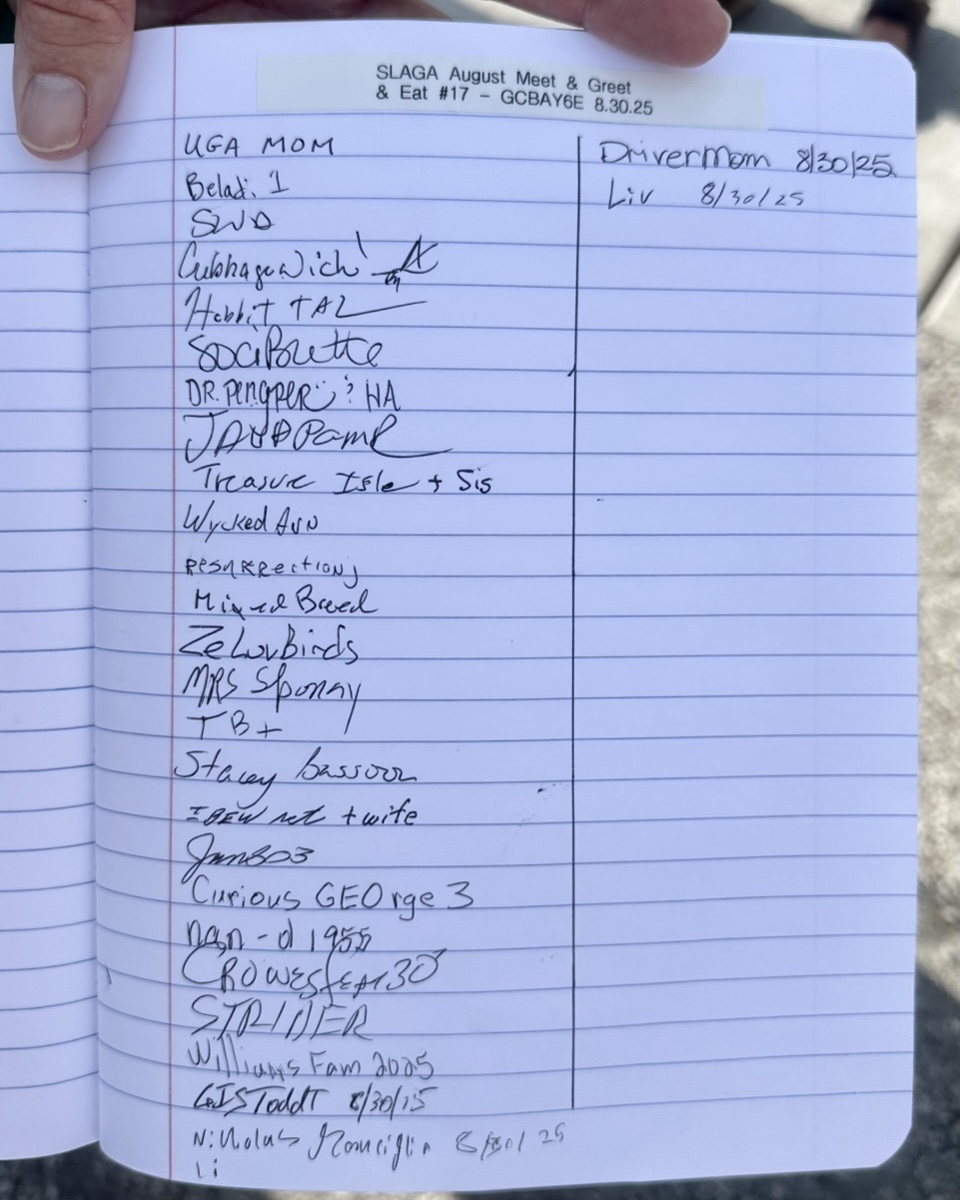 SLAGA August Meet & Greet
& Eat #17 - GCBAY6E 8.30.25
UGA MOM
Beladi 1
SWD
Hobbit TAL
DR. PENGPER
Treasure Isle + Sis
Wycked Ann
RESURRection
Mixed Breed
ZeLuvBirds
MRS Sponny
TB+
Stacey
IBEW ret + wife
Jum303
Curious GEOrge 3
nan-d 1955
CROWESfEAt30
STRIDER
Williams Fam 2025
GISToddT 8/30/25
Nicholas 8/30/25
Li
DriverMom 8/30/25
Liv 8/30/25